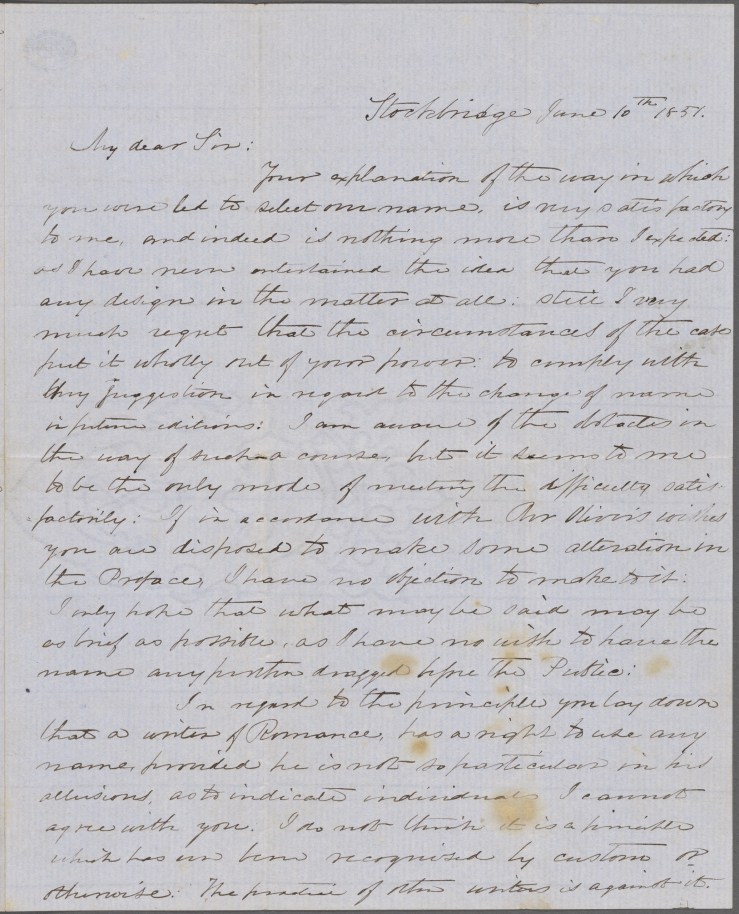 Stockbridge June 10th 1851.
My dear Sir:
Your explanation of the way in which
you were led to select our name, is very satisfactory
to me, and indeed is nothing more than I expected:
as I have never entertained the idea that you had
any design in the matter at all: still I very
much regret that the circumstances of the case
put it wholly out of your power: to comply with
my suggestion in regard to the change of name
in future editions: I am aware of the obstacles in
the way of such a course, but it seems to me
to be the only mode of meeting the difficulty satis-
factorily: If in accordance with Mr Oliver's wishes
you are disposed to make some alteration in
the Preface, I have no objection to make to it:
I only hope that what may be said may be
as brief as possible, as I have no wish to have the
name any further dragged before the Public:
In regard to the principle you lay down
that a writer of Romance, has a right to use any
name, provided he is not so particular in his
allusions, as to indicate individuals I cannot
agree with you. I do not think it is a principle
which has ever been recognised by custom or
otherwise: The practice of other writers is against it.